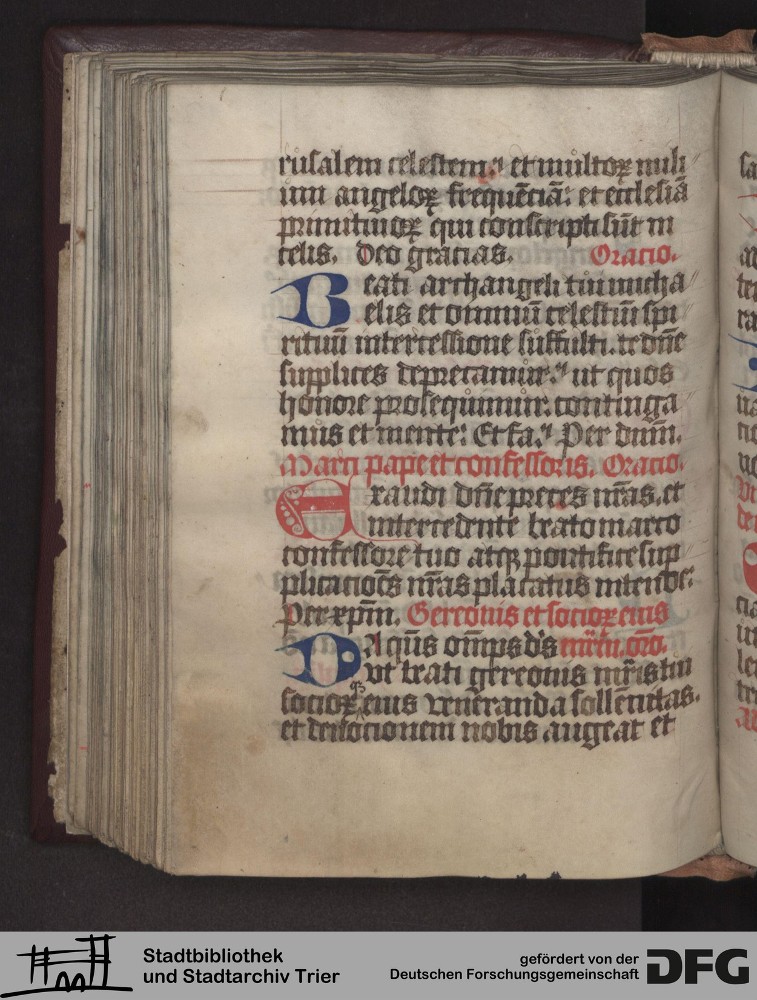 rusalem celestem: et multoꝝ mili
um angeloꝝ frequẽciã: et ecclesiã
primitiuoꝝ qui conscripti sũt in
celis. Deo gracias. Oracio.
Beati archangeli tui micha
elis et omniũ celestiũ spi
rituũ intercessione suffulti. te dñe
supplices deprecamur: ut quos
honore prosequimur. continga
mus et mente. Et fa. Per dnm̃.
Marci pape et confessoris. Oracio.
Exaudi dñe preces nr̃as. et
intercedente beato marco
confessore tuo atqꝫ pontifice sup
plicacioẽs nr̃as placatus intende.
Per xp̃m. Gereonis et socioꝝ eius
Da qs̃ om̃ps ds̃ mr̃m. orõ.
vt beati gereonis mr̃is tui
socioꝝqꝫ eius veneranda sollẽnitas.
et deuocionem nobis augeat et
Stadtbibliothek
und Stadtarchiv Trier
gefördert von der
Deutschen Forschungsgemeinschaft
DFG